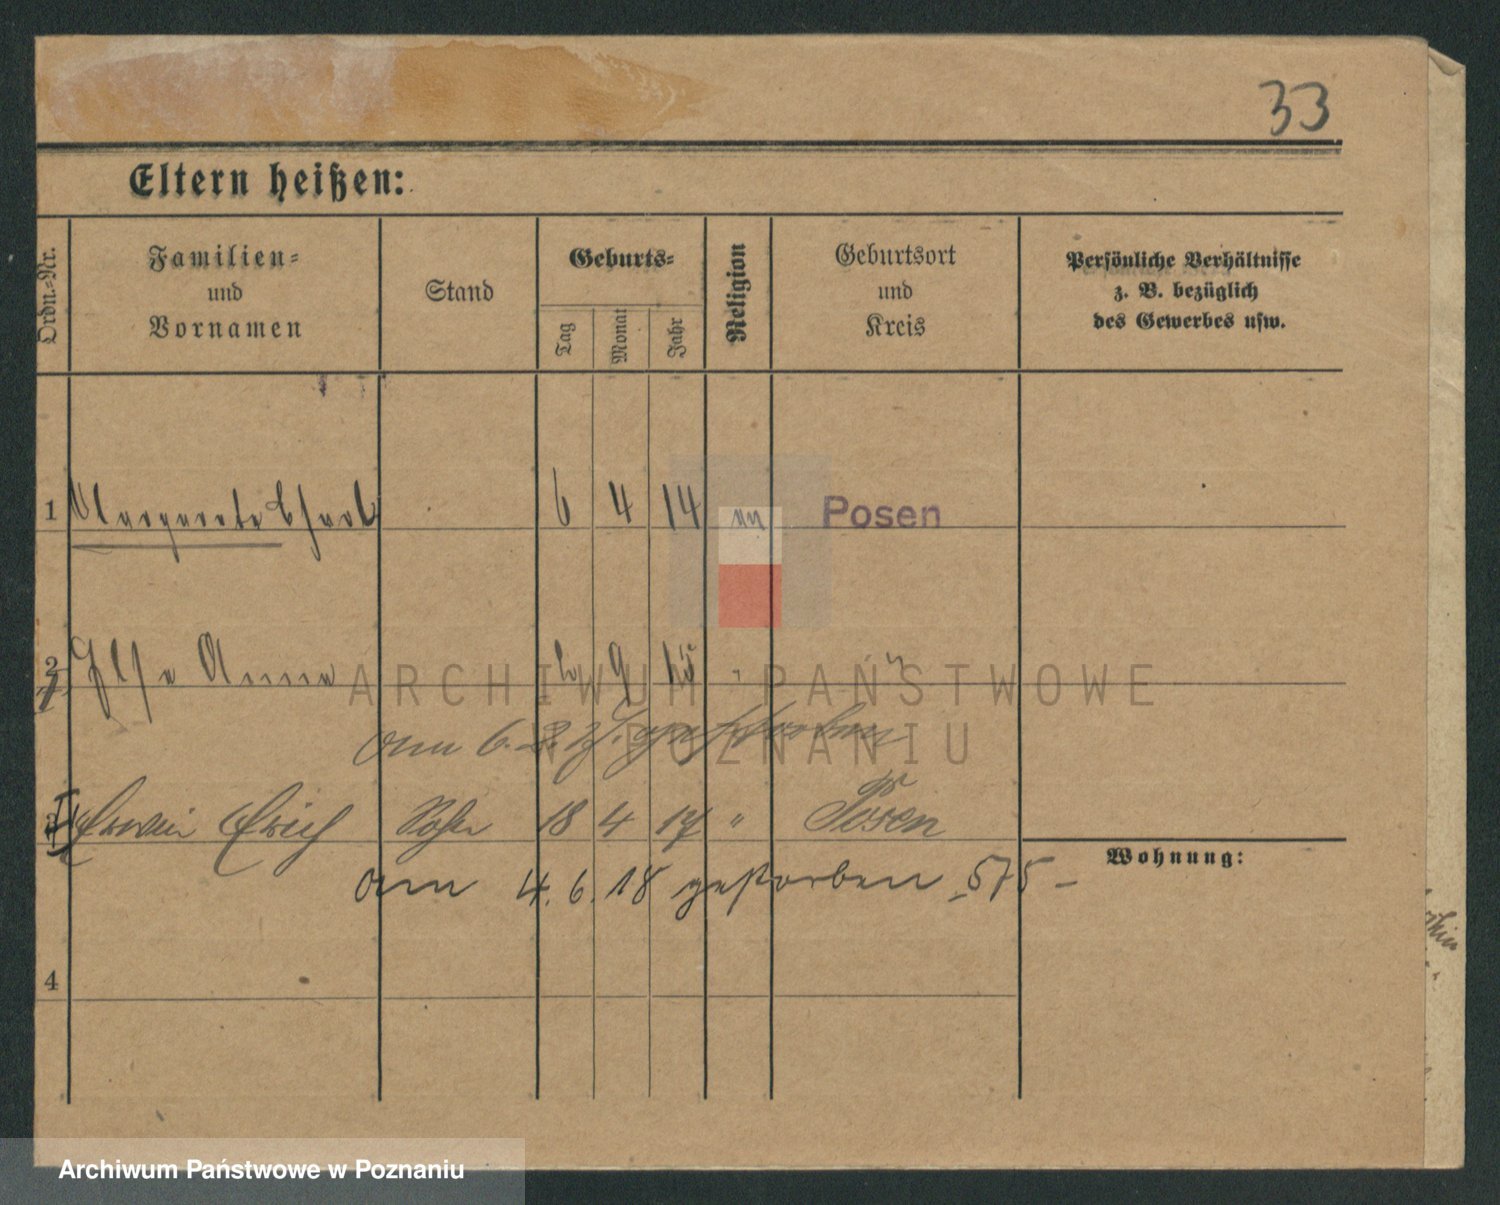 33
Eltern heißen:
Ordn.-Nr.
Familien-
und
Vornamen
Stand
Geburts-
Tag
Monat
Jahr
Religion
Geburtsort
und
Kreis
Persönliche Verhältnisse
z. B. bezüglich
des Gewerbes usw.
1 Margarete 6 4 14 Posen
2 Ilse Anna 9
ARCHIWUM PAŃSTWOWE
W POZNANIU
am 6. gestorben
3 Erwin Erich Sohn 18 4 17 " Posen
Wohnung:
am 4. 6. 18 gestorben 575 -
4
Archiwum Państwowe w Poznaniu